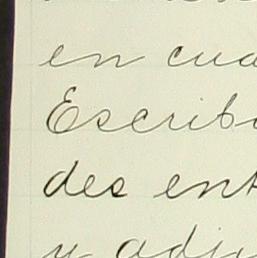 en cua
Escrib
des ent
y adju